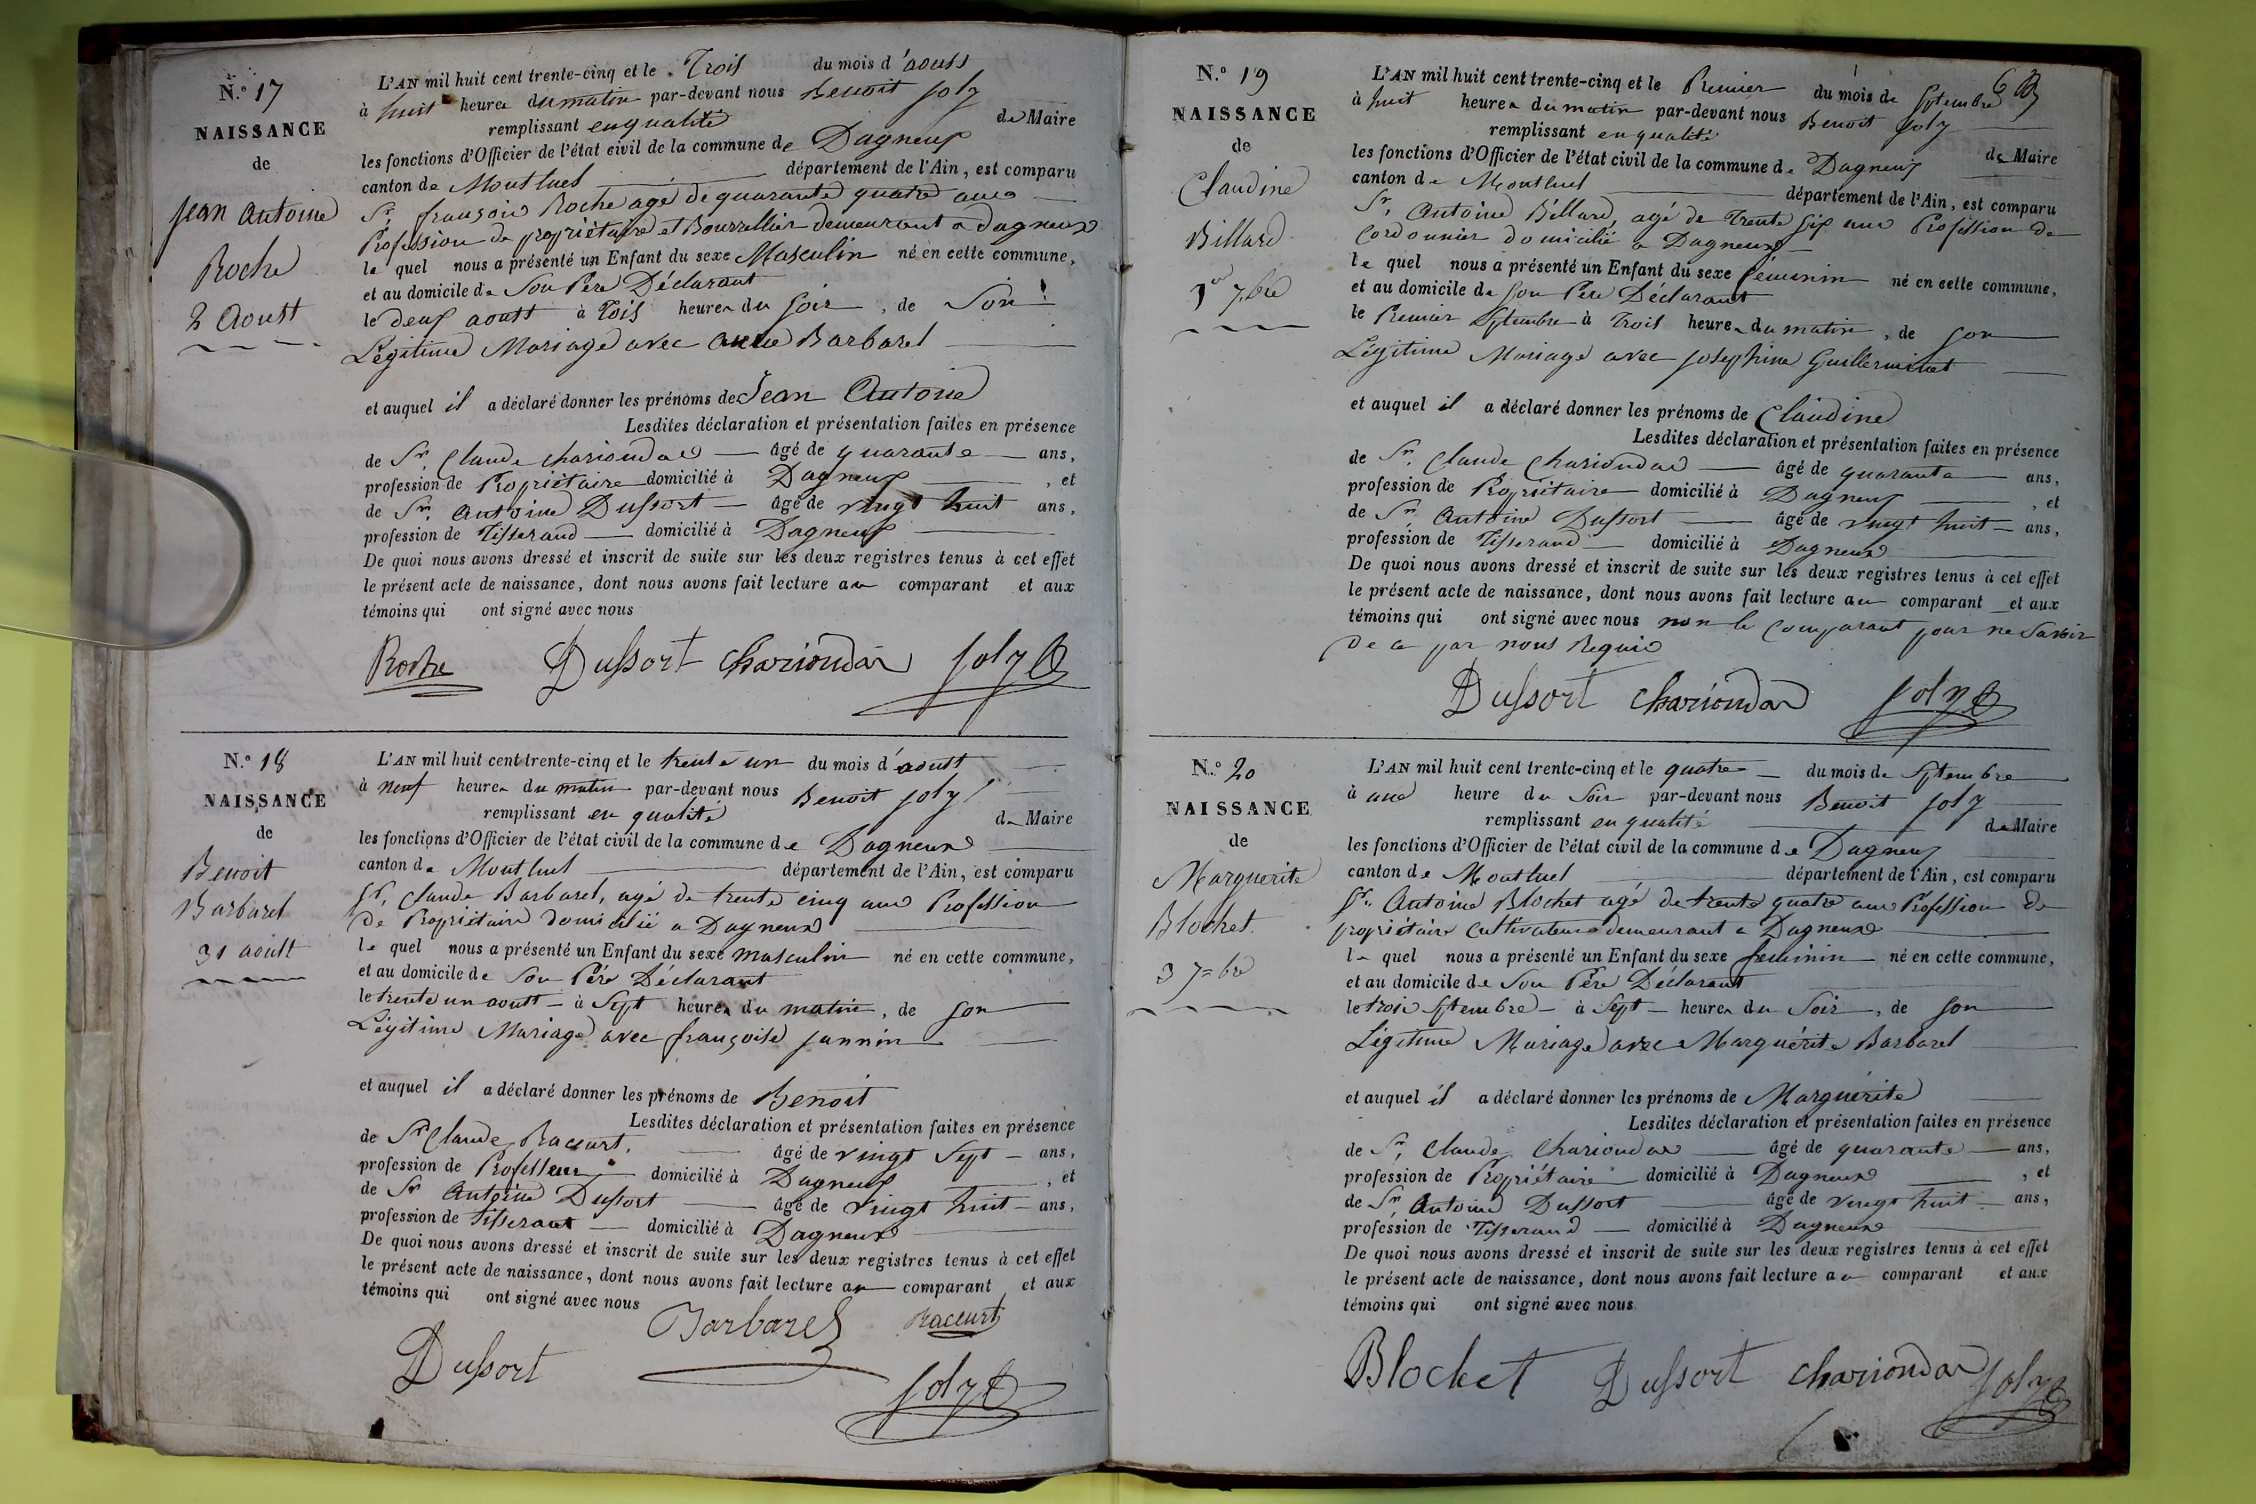 N.° 17
NAISSANCE
de
Jean Antoine
Roche
2 Aoust
L'AN mil huit cent trente-cinq et le Trois du mois d'aoust
à huit heures du matin par-devant nous Benoit Joly
remplissant en qualité de Maire
les fonctions d'Officier de l'état civil de la commune de Dagneux
canton de Montluel département de l'Ain, est comparu
Sr. françois Roche agé de quarante quatre ans
Profession de propriétaire et Bourrellier demeurant a dagneux
le quel nous a présenté un Enfant du sexe Masculin né en cette commune,
et au domicile de Son Père Déclarant
le deux aoust à Trois heures du soir, de Son
Légitime Mariage avec Barbaret
et auquel il a déclaré donner les prénoms de Jean Antoine
Lesdites déclaration et présentation faites en présence
de Sr. Claude chariondas âgé de quarante ans,
profession de Propriétaire domicilié à Dagneux, et
de Sr. Antoine Dussort âgé de vingt huit ans,
profession de Tisserand domicilié à Dagneux
De quoi nous avons dressé et inscrit de suite sur les deux registres tenus à cet effet
le présent acte de naissance, dont nous avons fait lecture au comparant et aux
témoins qui ont signé avec nous
Roche Dussort chariondas Joly
N.° 18
NAISSANCE
de
Benoit
Barbaret
31 aoust
L'AN mil huit cent trente-cinq et le trente un du mois d'aoust
à neuf heures du matin par-devant nous Benoit Joly
remplissant en qualité de Maire
les fonctions d'Officier de l'état civil de la commune de Dagneux
canton de Montluel département de l'Ain, est comparu
Sr. Claude Barbaret, agé de trente cinq ans Profession
de Propriétaire domicilié a Dagneux
le quel nous a présenté un Enfant du sexe masculin né en cette commune,
et au domicile de Son Père Déclarant
le trente un aoust à Sept heures du matin, de son
Légitime Mariage avec françoise Jannin
et auquel il a déclaré donner les prénoms de Benoit
Lesdites déclaration et présentation faites en présence
de Sr Claude Raccurt. âgé de vingt Sept ans,
profession de Professeur domicilié à Dagneux, et
de Sr Antoine Dussort âgé de vingt huit ans,
profession de Tisserant domicilié à Dagneux
De quoi nous avons dressé et inscrit de suite sur les deux registres tenus à cet effet
le présent acte de naissance, dont nous avons fait lecture au comparant et aux
témoins qui ont signé avec nous
Barbaret Raccurt
Dussort Joly
N.° 19
NAISSANCE
de
Claudine
Billard
1er 7bre
6
L'AN mil huit cent trente-cinq et le Premier du mois de Septembre
à huit heures du matin par-devant nous Benoit Joly
remplissant en qualité de Maire
les fonctions d'Officier de l'état civil de la commune de Dagneux
canton de Montluel département de l'Ain, est comparu
Sr. Antoine Billard, agé de Trente six ans Profession de
Cordonnier domicilié a Dagneux
le quel nous a présenté un Enfant du sexe féminin né en cette commune,
et au domicile de son Père Déclarant
le Premier Septembre à Trois heures du matin, de son
Légitime Mariage avec Josephine Guillerminet
et auquel il a déclaré donner les prénoms de Claudine
Lesdites déclaration et présentation faites en présence
de Sr. Claude Chariondas âgé de quarante ans,
profession de Propriétaire domicilié à Dagneux, et
de Sr. Antoine Dussort âgé de vingt huit ans,
profession de Tisserand domicilié à Dagneux
De quoi nous avons dressé et inscrit de suite sur les deux registres tenus à cet effet
le présent acte de naissance, dont nous avons fait lecture au comparant et aux
témoins qui ont signé avec nous non le Comparant pour ne Savoir
De ce par nous Requis
Dussort chariondas Joly
N.° 20
NAISSANCE
de
Marguerite
Blochet.
3 7=bre
L'AN mil huit cent trente-cinq et le quatre du mois de Septembre
à une heure du Soir par-devant nous Benoit Joly
remplissant en qualité de Maire
les fonctions d'Officier de l'état civil de la commune de Dagneux
canton de Montluel département de l'Ain, est comparu
Sr. Antoine Blochet agé de trente quatre ans Profession de
propriétaire Cultivateur demeurant a Dagneux
le quel nous a présenté un Enfant du sexe feminin né en cette commune,
et au domicile de Son Père Déclarant
le trois Septembre à Sept heures du Soir, de son
Légitime Mariage avec Marguérite Barbaret
et auquel il a déclaré donner les prénoms de Marguérite
Lesdites déclaration et présentation faites en présence
de Sr. Claude Chariondas âgé de quarante ans,
profession de Propriétaire domicilié à Dagneux, et
de Sr. Antoine Dussort âgé de vingt huit ans,
profession de Tisserand domicilié à Dagneux
De quoi nous avons dressé et inscrit de suite sur les deux registres tenus à cet effet
le présent acte de naissance, dont nous avons fait lecture au comparant et aux
témoins qui ont signé avec nous
Blochet Dussort chariondas Joly